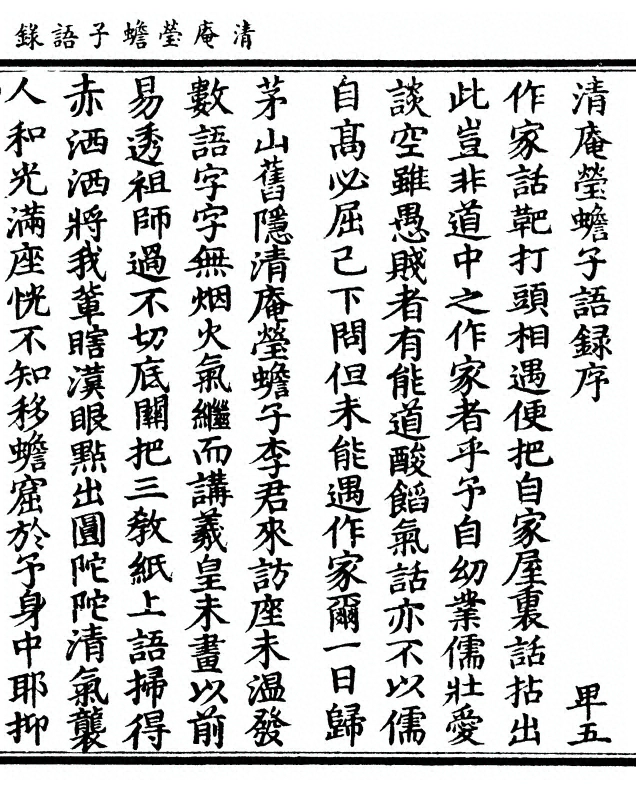 清庵瑩蟾子語錄
清庵瑩蟾子語録序 甲五
作家話靶打頭相遇便把自家屋裏話拈出
此豈非道中之作家者乎予自幼業儒壯愛
談空雖愚賤者有能道酸餡氣話亦不以儒
自高必屈己下問但未能遇作家爾一日歸
茅山舊隱清庵瑩蟾子李君來訪座未溫發
數語字字無烟火氣繼而講羲皇未畫以前
易透祖師過不切底關把三教紙上語掃得
赤洒洒將我輩瞎漢眼㸃出圓陀陀清氣襲
人和光滿座恍不知移蟾窟於予身中耶抑